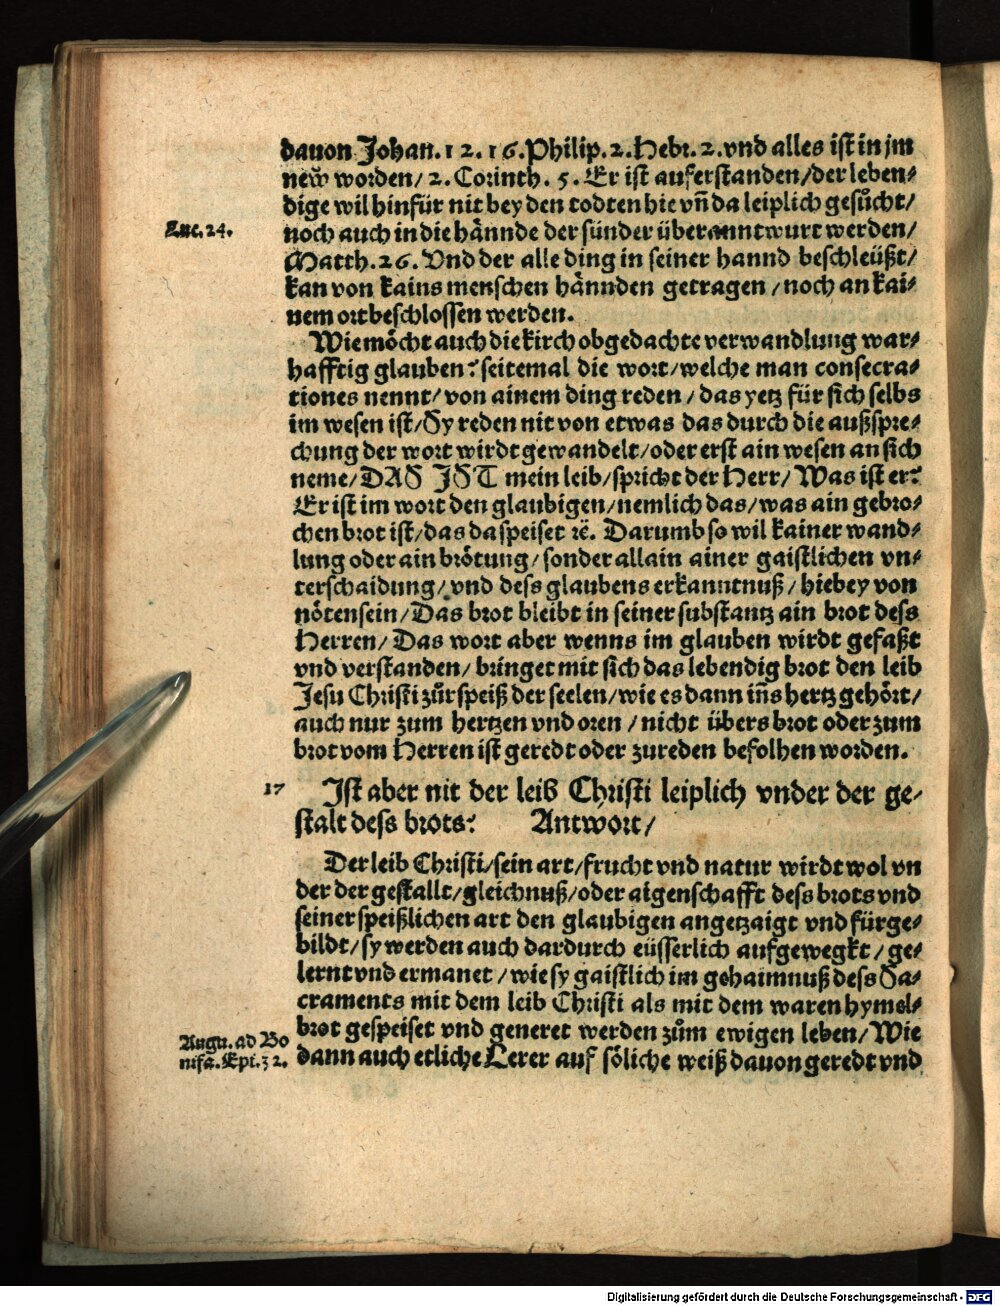 dauon Johan. 12. 16. Philip. 2. Hebr. 2. vnd alles ist in jm
new̃ worden/ 2. Corinth. 5. Er ist auferstanden/ der leben⸗
dige wil hinfür nit bey den todten hie vñ da leiplich gesůcht/
Luc. 24.
noch auch in die hännde der sünder überanntwurt werden/
Matth. 26. Vnd der alle ding in seiner hannd beschleüßt/
kan von kains menschen hännden getragen / noch an kai⸗
nem ort beschlossen werden.
Wie möcht auch die kirch obgedachte verwandlung war⸗
hafftig glauben? seitemal die wort/ welche man consecra⸗
tiones nennt/ von ainem ding reden / das yetz für sich selbs
im wesen ist/ Sy reden nit von etwas das durch die außspre⸗
chung der wort wirdt gewandelt/ oder erst ain wesen an sich
neme/ DAS IST mein leib/ spricht der Herr/ Was ist er?
Er ist im wort den glaubigen/ nemlich das/ was ain gebro⸗
chen brot ist/ das da speiset ꝛc̈. Darumb so wil kainer wand⸗
lung oder ain brötung/ sonder allain ainer gaistlichen vn⸗
terschaidung/ vnd dess glaubens erkanntnuß/ hiebey von
nöten sein/ Das brot bleibt in seiner substantz ain brot dess
Herren/ Das wort aber wenns im glauben wirdt gefaßt
vnd verstanden/ bringet mit sich das lebendig brot den leib
Jesu Christi zůr speiß der seelen/ wie es dann iñs hertz gehört/
auch nur zum hertzen vnd oren / nicht übers brot oder zum
brot vom Herren ist geredt oder zureden befolhen worden.
17 Jst aber nit der leib Christi leiplich vnder der ge⸗
stalt dess brots? Antwort/
Der leib Christi/ sein art/ frucht vnd natur wirdt wol vn
der der gestallt/ gleichnuß/ oder aigenschafft dess brots vnd
seiner speißlichen art den glaubigen angetzaigt vnd fürge⸗
bildt/ sy werden auch dardurch eüsserlich aufgewegkt/ ge⸗
lernt vnd ermanet / wie sy gaistlich im gehaimnuß dess Sa⸗
craments mit dem leib Christi als mit dem waren hymel⸗
brot gespeiset vnd generet werden zům ewigen leben/ Wie
Augu. ad Bo
nifa. Epi. 32.
dann auch etliche Lerer auf söliche weiß dauon geredt vnd
Digitalisierung gefördert durch die Deutsche Forschungsgemeinschaft - DFG